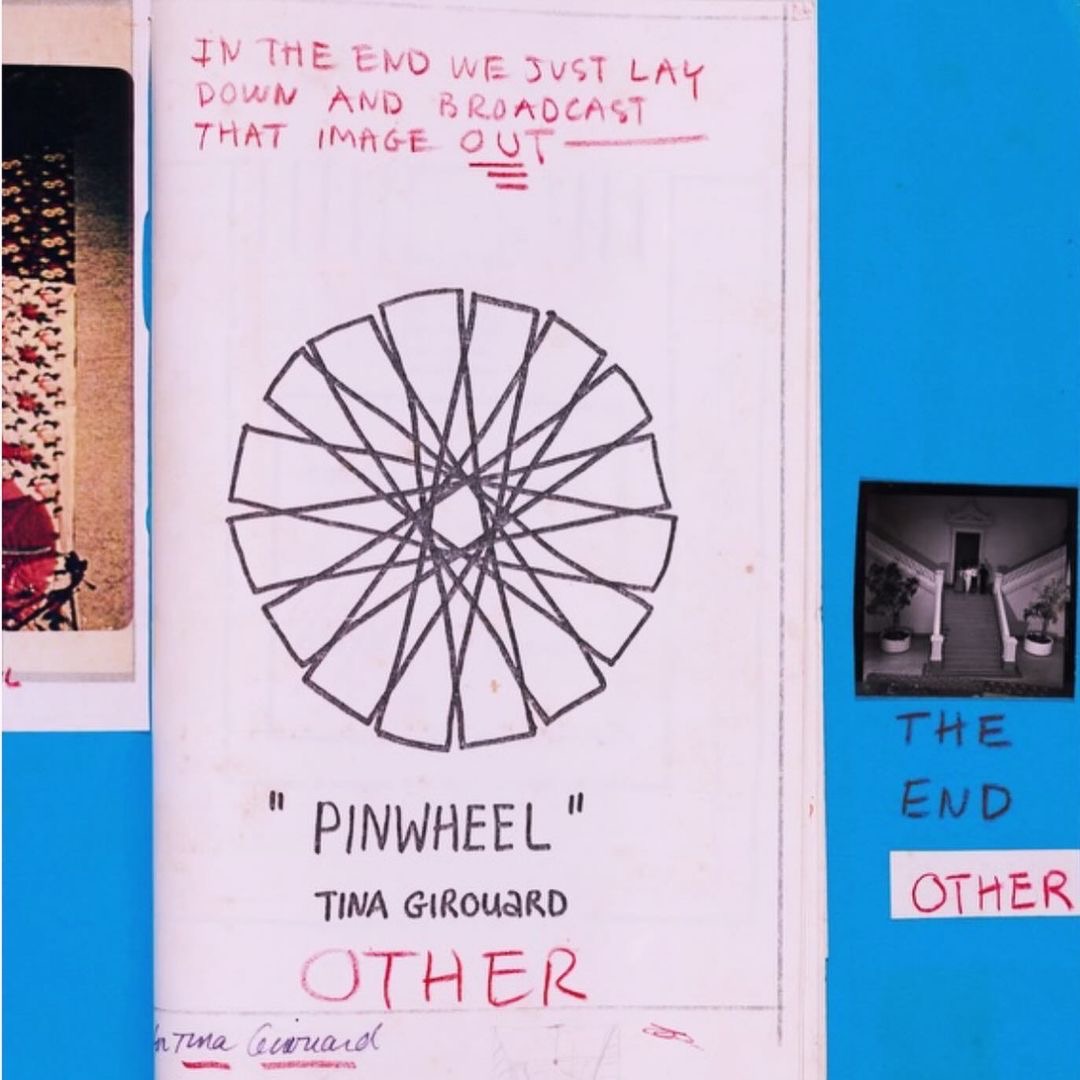 IN THE END WE JUST LAY
DOWN AND BROADCAST
THAT IMAGE OUT
" PINWHEEL "
TINA GIROUARD
OTHER
Tina Girouard
THE
END
OTHER